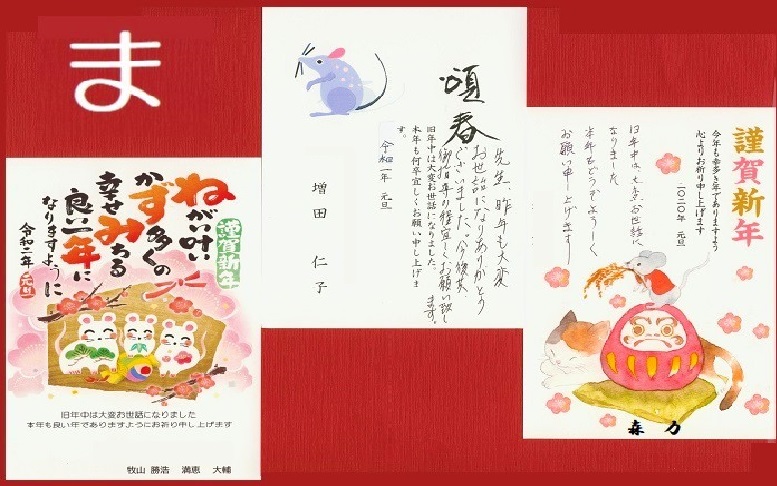 ま
ねがい叶い
かず多くの
幸せみちる
良い一年に
なりますように
令和二年 元旦
謹賀新年
旧年中は大変お世話になりました
本年も良い年でありますようにお祈り申し上げます
牧山 勝浩 満恵 大輔
頌春
先生、昨年も大変
お世話になりありがとう
ございました。今後共、
宜しくお願い致し
ます。
旧年中は大変お世話になりました
本年も何卒宜しくお願い申し上げま
す。
令和二年 元旦
増田 仁子
謹賀新年
今年も幸多き年でありますよう
心よりお祈り申し上げます
二〇二〇年 元旦
旧年中は、大変お世話に
なりました
本年もどうぞよろしく
お願い申し上げます
森 力